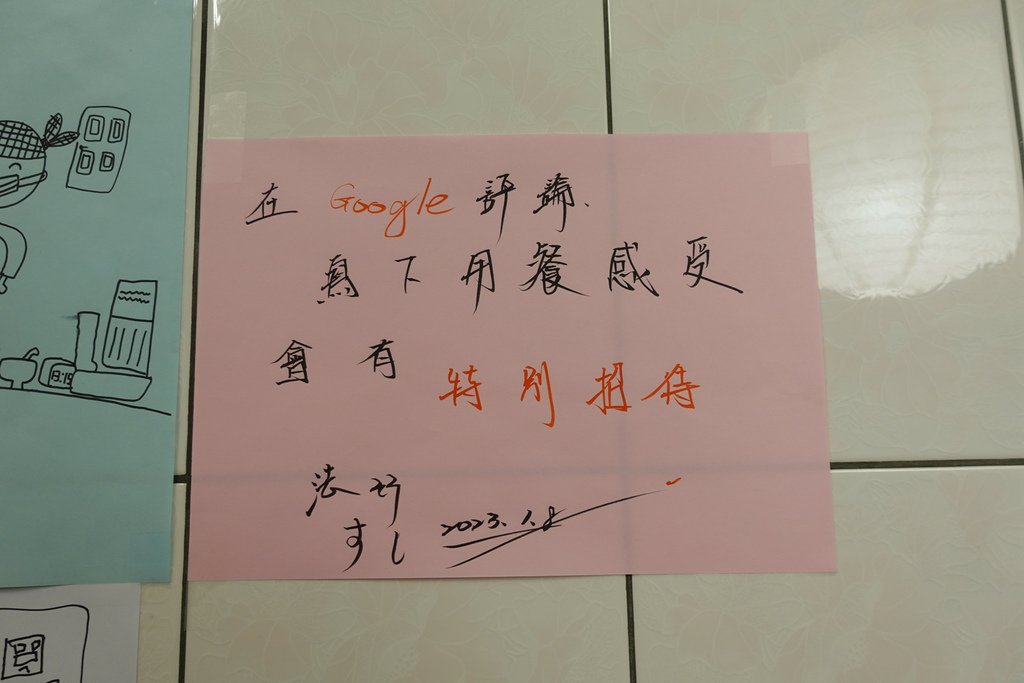 在 Google 評論.
寫下用餐感受
會有 特別招待
法
すし 2023.1.8
8:19